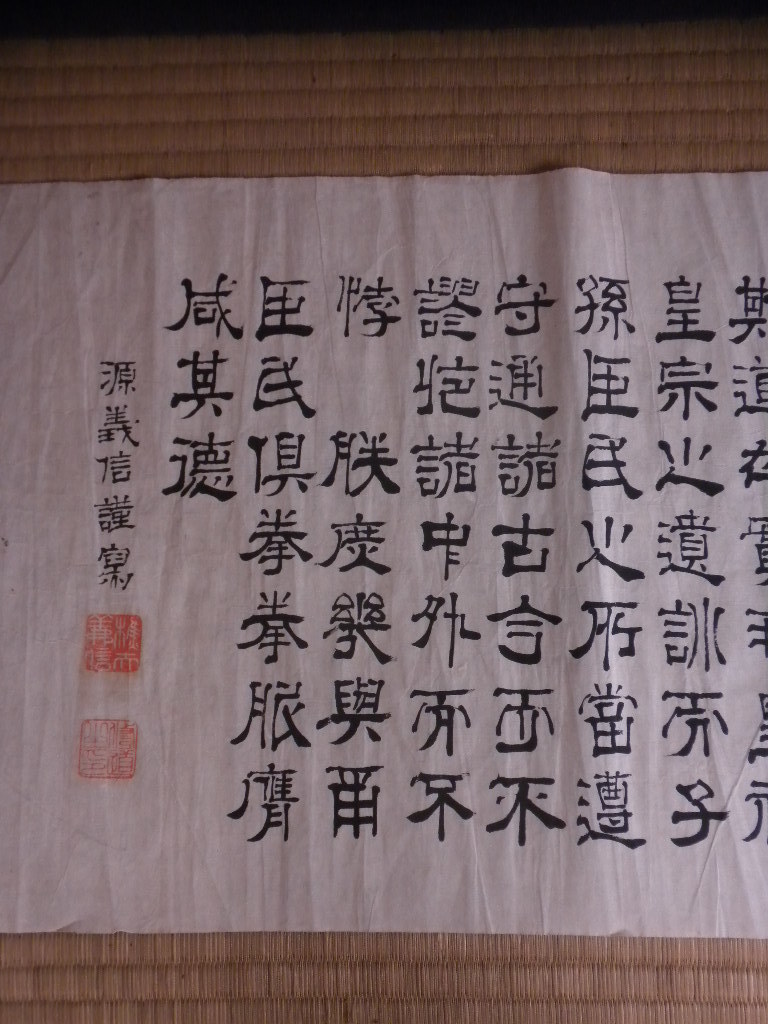 斯道實我皇祖
皇宗之遺訓而子
孫臣民之所當遵
守通諸古今而不
謬施諸中外而不
悖 朕庶幾與爾
臣民俱拳拳服膺
咸其德
源義信謹寫